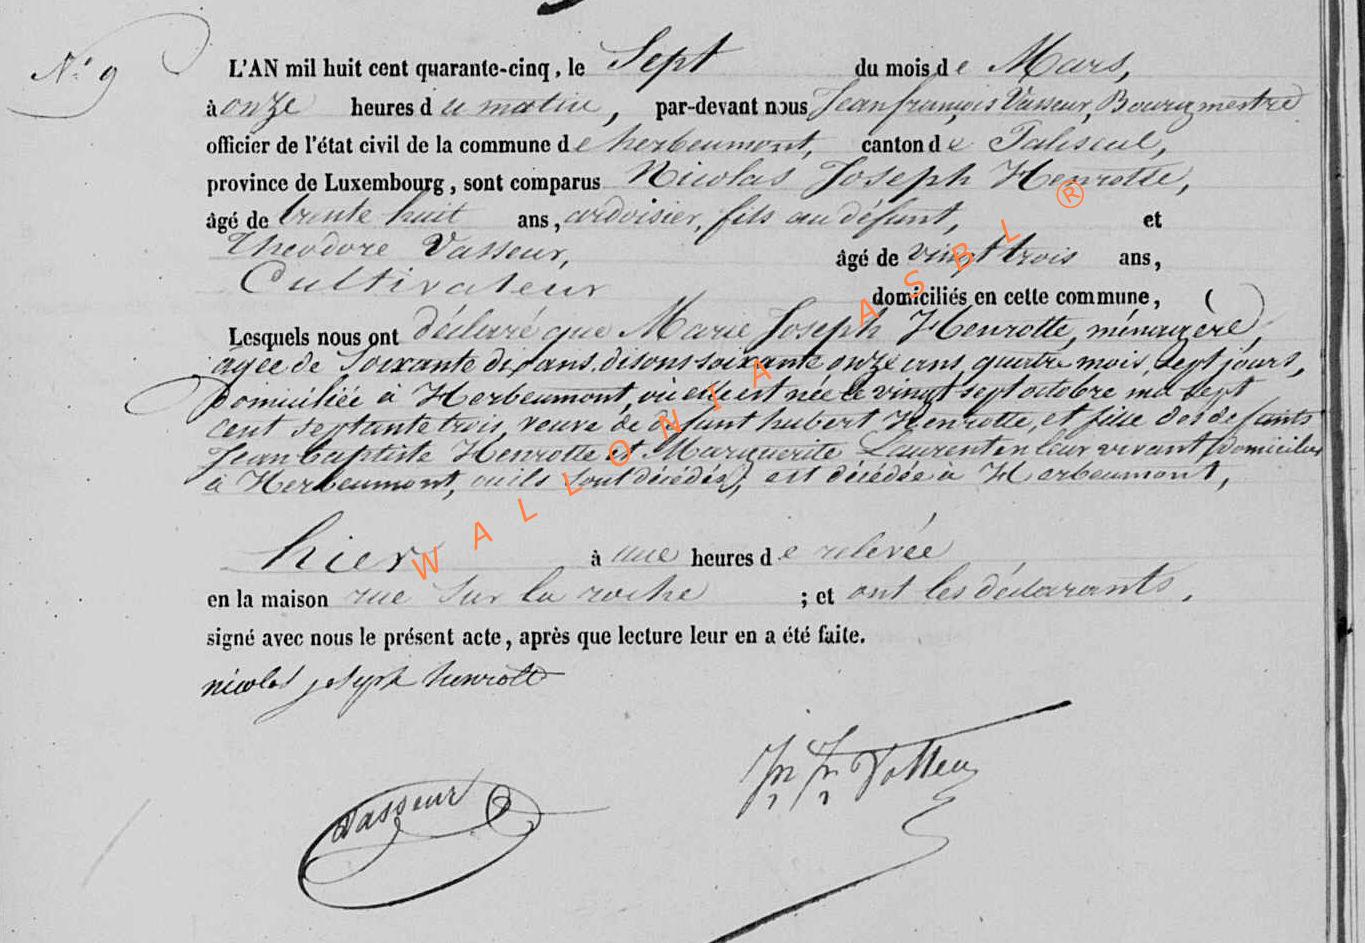 N.° 9
L'AN mil huit cent quarante-cinq, le Sept du mois de Mars,
à onze heures du matin, par-devant nous Jean françois Vasseur, Bourgmestre
officier de l'état civil de la commune de herbeumont, canton de Paliseul,
province de Luxembourg, sont comparus Nicolas Joseph Henrotte,
âgé de trente huit ans, ardoisier, fils au défunt, et
Théodore Vasseur, âgé de vingt trois ans,
Cultivateur domiciliés en cette commune, (
Lesquels nous ont déclaré que Marie Joseph Henrotte, ménagère,
agée de Soixante dix ans, disons soixante onze ans, quatre mois, sept jours,
domiciliée à Herbeumont, où elle est née le vingt sept octobre mil sept
cent septante trois, veuve de défunt hubert Henrotte, et fille des défunts
Jean baptiste Henrotte et Marguerite Laurent en leur vivant (domiciliés
à Herbeumont, où ils sont décédés), est décédée à Herbeumont,
hier à une heures de relevée
en la maison rue Sur la roche ; et ont les déclarants,
signé avec nous le présent acte, après que lecture leur en a été faite.
nicolas joseph henrotte
Jn Fr Vasseur
Vasseur
WALLONIA ASBL ®